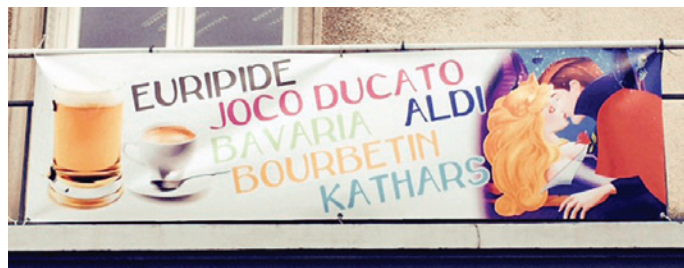 EURIPIDE
JOCO DUCATO
ALDI
BAVARIA
BOURBETIN
KATHARS